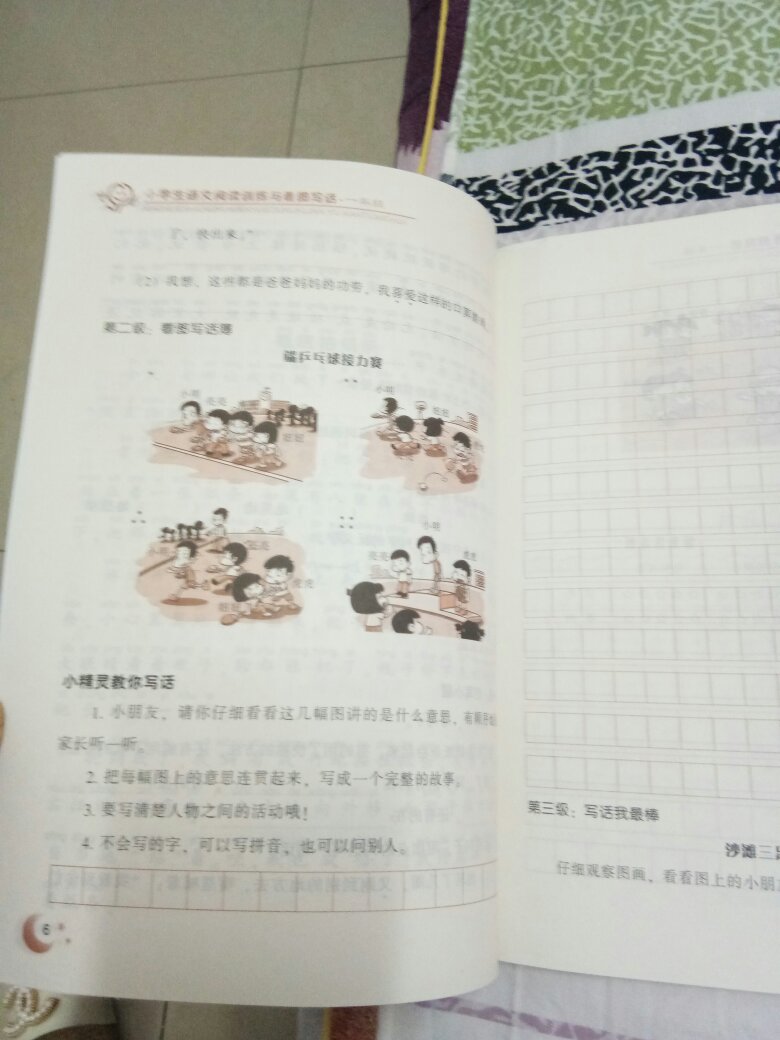 小学生语文阅读训练与看图写话·一年级
了，快出来。”
（2）我想，这些都是爸爸妈妈的功劳，我喜爱这样的口
第二级：看图写话薄
乒乓球接力赛
小明
亮亮
旺旺
小明
旺旺
小明
亮亮
虎虎
旺旺
小明
亮亮
虎虎
小精灵教你写话
1. 小朋友，请你仔细看看这几幅图讲的是什么意思，
家长听一听。
2. 把每幅图上的意思连贯起来，写成一个完整的故事。
3. 要写清楚人物之间的活动哦！
4. 不会写的字，可以写拼音，也可以问别人。
6
第三级：写话我最棒
沙滩三
仔细观察图画，看看图上的小朋